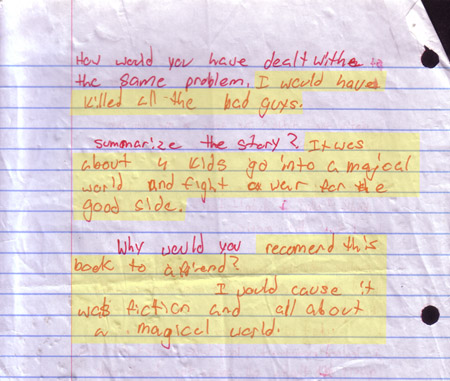 How would you have dealt withe to
the same problem. I would have
killed all the bad guys.
summarize the story? It was
about 4 kids go into a majoal
world and fight a war for the
good side.
Why would you recomend this
book to a friend?
I would cause it
was fiction and all about
a magical world.